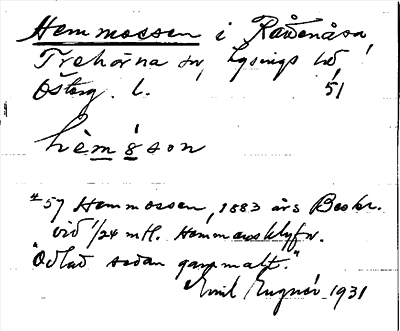 Hemmossen i Rådenåsa,
Trehörna sn, Lysings hd,
Österg. l. 51
hèm 8 son
# 57 Hemmossen, 1883 års Beskr.
vid 1/24 mtl. Hemmansklyfn.
"Odlad sedan gammalt."
Emil 1931